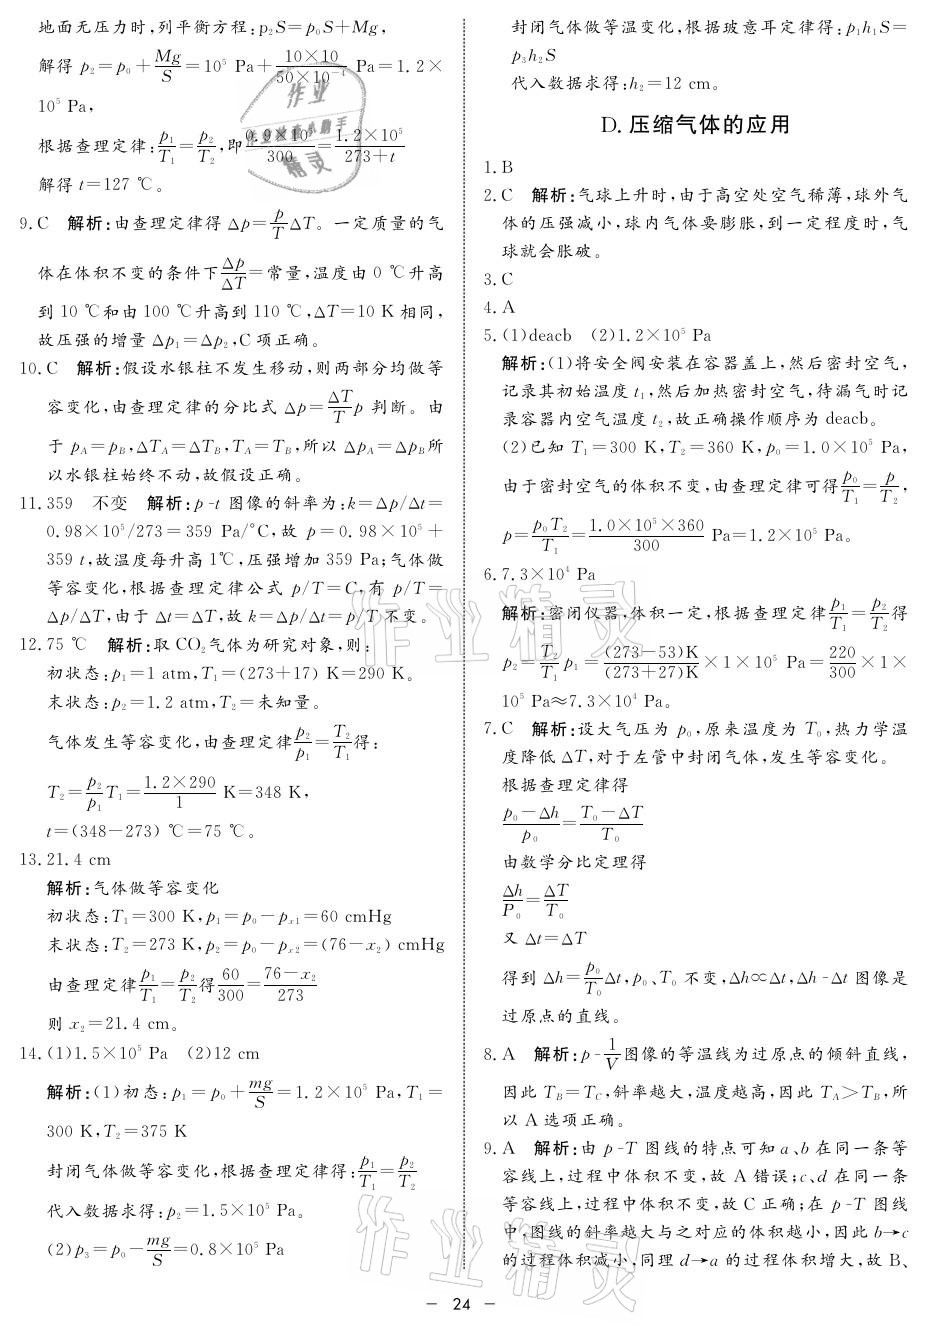 地面无压力时,列平衡方程:p₂S=p₀S+Mg,
解得 p₂=p₀+Mg/S=10⁵ Pa+10×10/50×10⁻⁴ Pa=1.2×
10⁵ Pa,
根据查理定律:p₁/T₁=p₂/T₂,即0.9×10⁵/300=1.2×10⁵/273+t
解得 t=127 ℃。
9.C 解析:由查理定律得 Δp=p/TΔT。一定质量的气
体在体积不变的条件下Δp/ΔT=常量,温度由 0 ℃升高
到 10 ℃和由 100 ℃升高到 110 ℃,ΔT=10 K相同,
故压强的增量 Δp₁=Δp₂,C 项正确。
10.C 解析:假设水银柱不发生移动,则两部分均做等
容变化,由查理定律的分比式 Δp=ΔT/T p 判断。由
于 p_A=p_B,ΔT_A=ΔT_B,T_A=T_B,所以 Δp_A=Δp_B所
以水银柱始终不动,故假设正确。
11.359 不变 解析:p-t 图像的斜率为:k=Δp/Δt=
0.98×10⁵/273=359 Pa/°C,故 p=0.98×10⁵+
359 t,故温度每升高 1℃,压强增加 359 Pa;气体做
等容变化,根据查理定律公式 p/T=C,有 p/T=
Δp/ΔT,由于 Δt=ΔT,故 k=Δp/Δt=p/T不变。
12.75 ℃ 解析:取 CO₂气体为研究对象,则:
初状态:p₁=1 atm,T₁=(273+17) K=290 K。
末状态:p₂=1.2 atm,T₂=未知量。
气体发生等容变化,由查理定律p₂/p₁=T₂/T₁得:
T₂=p₂/p₁T₁=1.2×290/1 K=348 K,
t=(348-273) ℃=75 ℃。
13.21.4 cm
解析:气体做等容变化
初状态:T₁=300 K,p₁=p₀-pₓ₁=60 cmHg
末状态:T₂=273 K,p₂=p₀-pₓ₂=(76-x₂) cmHg
由查理定律p₁/T₁=p₂/T₂得60/300=76-x₂/273
则 x₂=21.4 cm。
14.(1)1.5×10⁵ Pa (2)12 cm
解析:(1)初态:p₁=p₀+mg/S=1.2×10⁵ Pa,T₁=
300 K,T₂=375 K
封闭气体做等容变化,根据查理定律得:p₁/T₁=p₂/T₂
代入数据求得:p₂=1.5×10⁵Pa。
(2)p₃=p₀-mg/S=0.8×10⁵ Pa
封闭气体做等温变化,根据玻意耳定律得:p₁h₁S=
p₃h₂S
代入数据求得:h₂=12 cm。
D.压缩气体的应用
1.B
2.C 解析:气球上升时,由于高空处空气稀薄,球外气
体的压强减小,球内气体要膨胀,到一定程度时,气
球就会胀破。
3.C
4.A
5.(1)deacb (2)1.2×10⁵ Pa
解析:(1)将安全阀安装在容器盖上,然后密封空气,
记录其初始温度 t₁,然后加热密封空气,待漏气时记
录容器内空气温度 t₂,故正确操作顺序为 deacb。
(2)已知 T₁=300 K,T₂=360 K,p₀=1.0×10⁵ Pa,
由于密封空气的体积不变,由查理定律可得p₀/T₁=p/T₂,
p=p₀T₂/T₁=1.0×10⁵×360/300 Pa=1.2×10⁵ Pa。
6.7.3×10⁴ Pa
解析:密闭仪器,体积一定,根据查理定律p₁/T₁=p₂/T₂得
p₂=T₂/T₁ p₁=(273-53)K/(273+27)K×1×10⁵ Pa=220/300×1×
10⁵ Pa≈7.3×10⁴ Pa。
7.C 解析:设大气压为 p₀,原来温度为 T₀,热力学温
度降低 ΔT,对于左管中封闭气体,发生等容变化。
根据查理定律得
p₀-Δh/p₀=T₀-ΔT/T₀
由数学分比定理得
Δh/P₀=ΔT/T₀
又 Δt=ΔT
得到 Δh=p₀/T₀Δt,p₀、T₀ 不变,Δh∝Δt,Δh-Δt 图像是
过原点的直线。
8.A 解析:p-1/V图像的等温线为过原点的倾斜直线,
因此 T_B=T_C,斜率越大,温度越高,因此 T_A>T_B,所
以 A 选项正确。
9.A 解析:由 p-T 图线的特点可知 a、b 在同一条等
容线上,过程中体积不变,故 A 错误;c、d 在同一条
等容线上,过程中体积不变,故 C 正确;在 p-T 图线
中,图线的斜率越大与之对应的体积越小,因此 b→c
的过程体积减小,同理 d→a 的过程体积增大,故 B、
- 24 -
作业精灵
作业精灵
作业
作业检查小助手
精灵